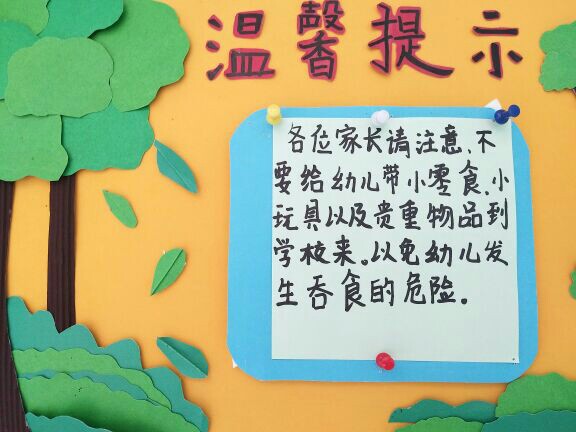 温馨提示
各位家长请注意,不
要给幼儿带小零食,小
玩具以及贵重物品到
学校来。以免幼儿发
生吞食的危险。